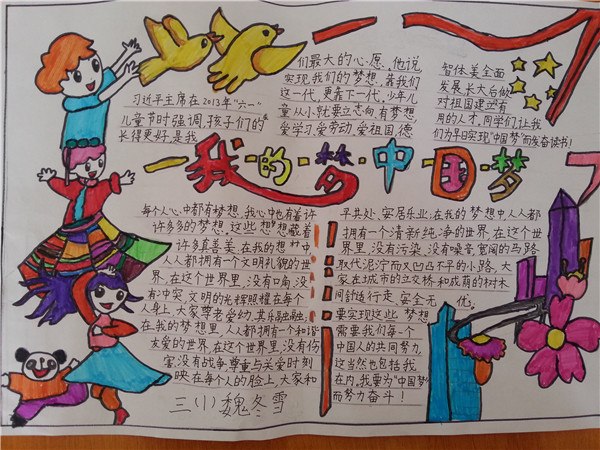 习近平主席在2013年“六一”
儿童节时强调,孩子们的
长得更好,是我
们最大的心愿,他说
实现我们的梦想,靠我们
这一代,更靠下一代,少年儿
童从小就要立志向,有梦想,
爱学习,爱劳动,爱祖国,德
智体美全面
发展,长大后做
对祖国建设有
用的人才,同学们,让我
们为早日实现“中国梦”而发奋读书!
我的梦·中国梦
每个人心中都有梦想,我心中也有着许
许多多的梦想,这些想想藏着
许多真善美,在我的梦想中
人人都拥有一个文明礼貌的世
界,在这个世界里,没有口角,没
有冲突,文明的光辉照耀在每个
人身上,大家尊老爱幼,其乐融融;
在我的梦想里,人人都拥有一个和谐
友爱的世界,在这个世界里,没有伤
害,没有战争,尊重与关爱时刻
映在每个人的脸上,大家和
平共处,安居乐业;在我的梦想中,人人都
拥有一个清新纯净的世界,在这个世
界里,没有污染,没有噪音,宽阔的马路
取代泥泞而又凹凸不平的小路,大
家在城市的立交桥和成荫的树木
间舒适行走,安全无忧。
要实现这些梦想
需要我们每一个
中国人的共同努力,
这当然也包括我
在内,我要为“中国梦”
而努力奋斗!
三(1)魏冬雪